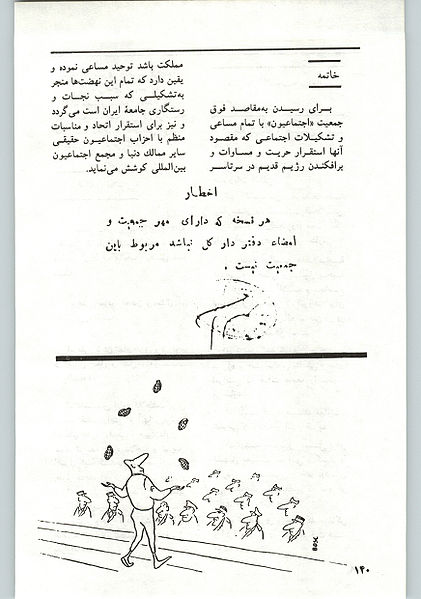 خاتمه
برای رسیدن به‌مقاصد فوق
جمعیت «اجتماعیون» با تمام مساعی
و تشکیلات اجتماعی که مقصود
آنها استقرار حریت و مساوات و
برافکندن رژیم قدیم در سرتاسر
مملکت باشد توحید مساعی نموده و
یقین دارد که تمام این نهضت‌ها منجر
به‌تشکیلی که سبب نجات و
رستگاری جامعهٔ ایران است می‌گردد
و نیز برای استقرار اتحاد و مناسبات
منظم با احزاب اجتماعیون حقیقی
سایر ممالک دنیا و مجمع اجتماعیون
بین‌المللی کوشش می‌نماید.
اخطار
هر نسخه که دارای مهر جمعیت و
امضاء دفتر دار کل نباشد مربوط باین
جمعیت نیست .
۱۴۰